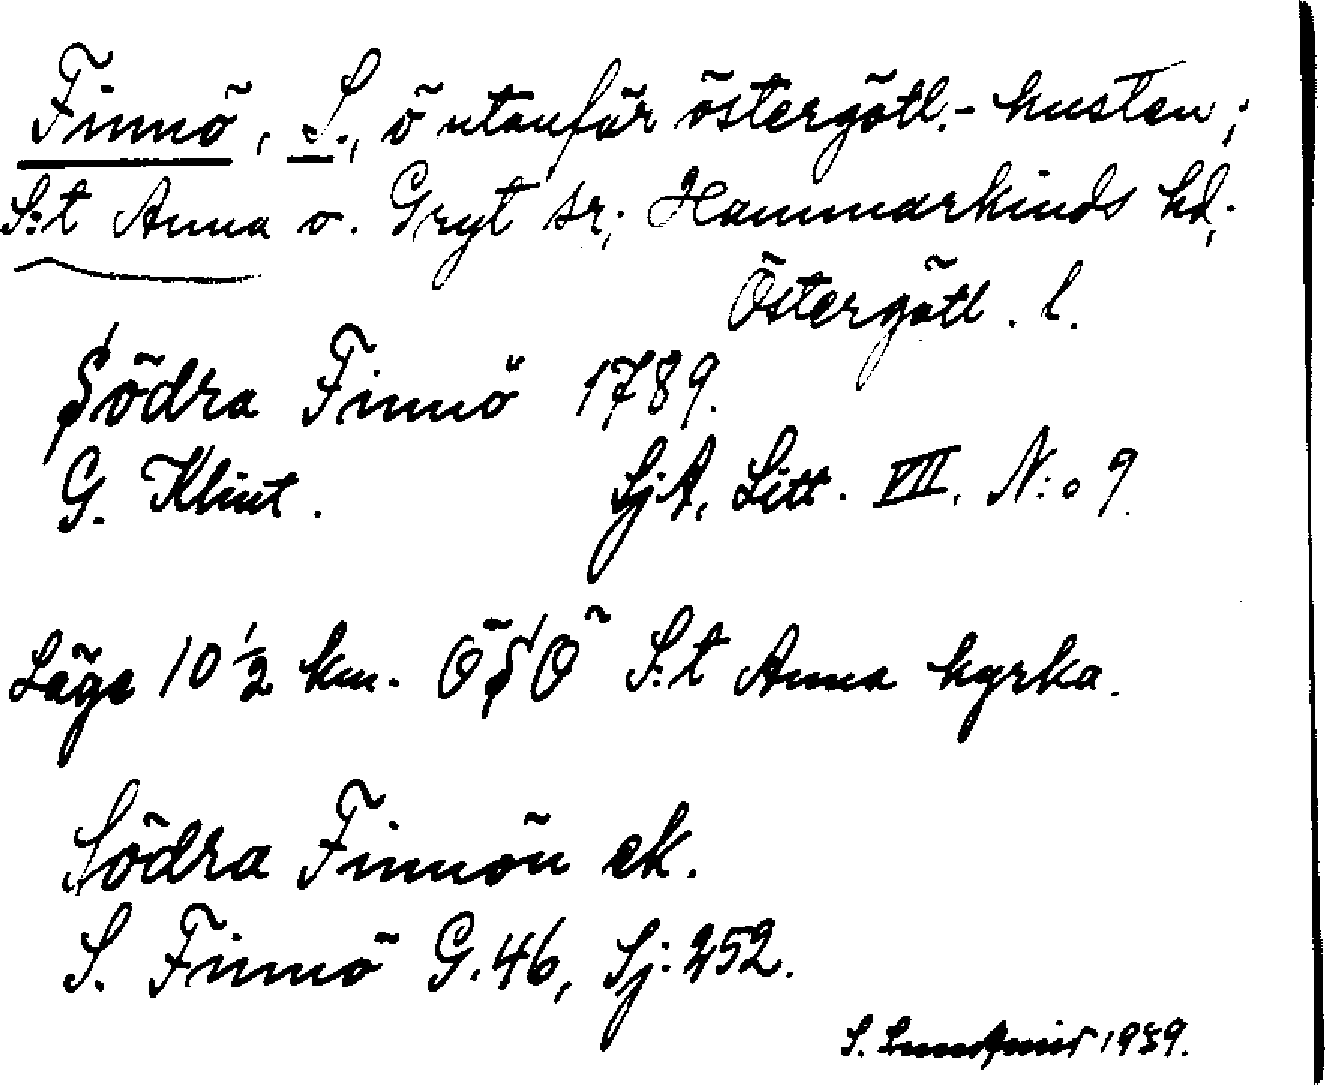 Finnö, S., ö utanför östergötl.-kusten;
S:t Anna o. Gryt sr; Hammarkinds hd;
Östergötl. l.
Södra Finnö 1789.
G. Klint. SjA, Litt. VII. N:o 9.
Läge 10 1/2 km. ÖSÖ S:t Anna kyrka.
Södra Finnön ek.
S. Finnö G.46, Sj:252.
S. 1939.